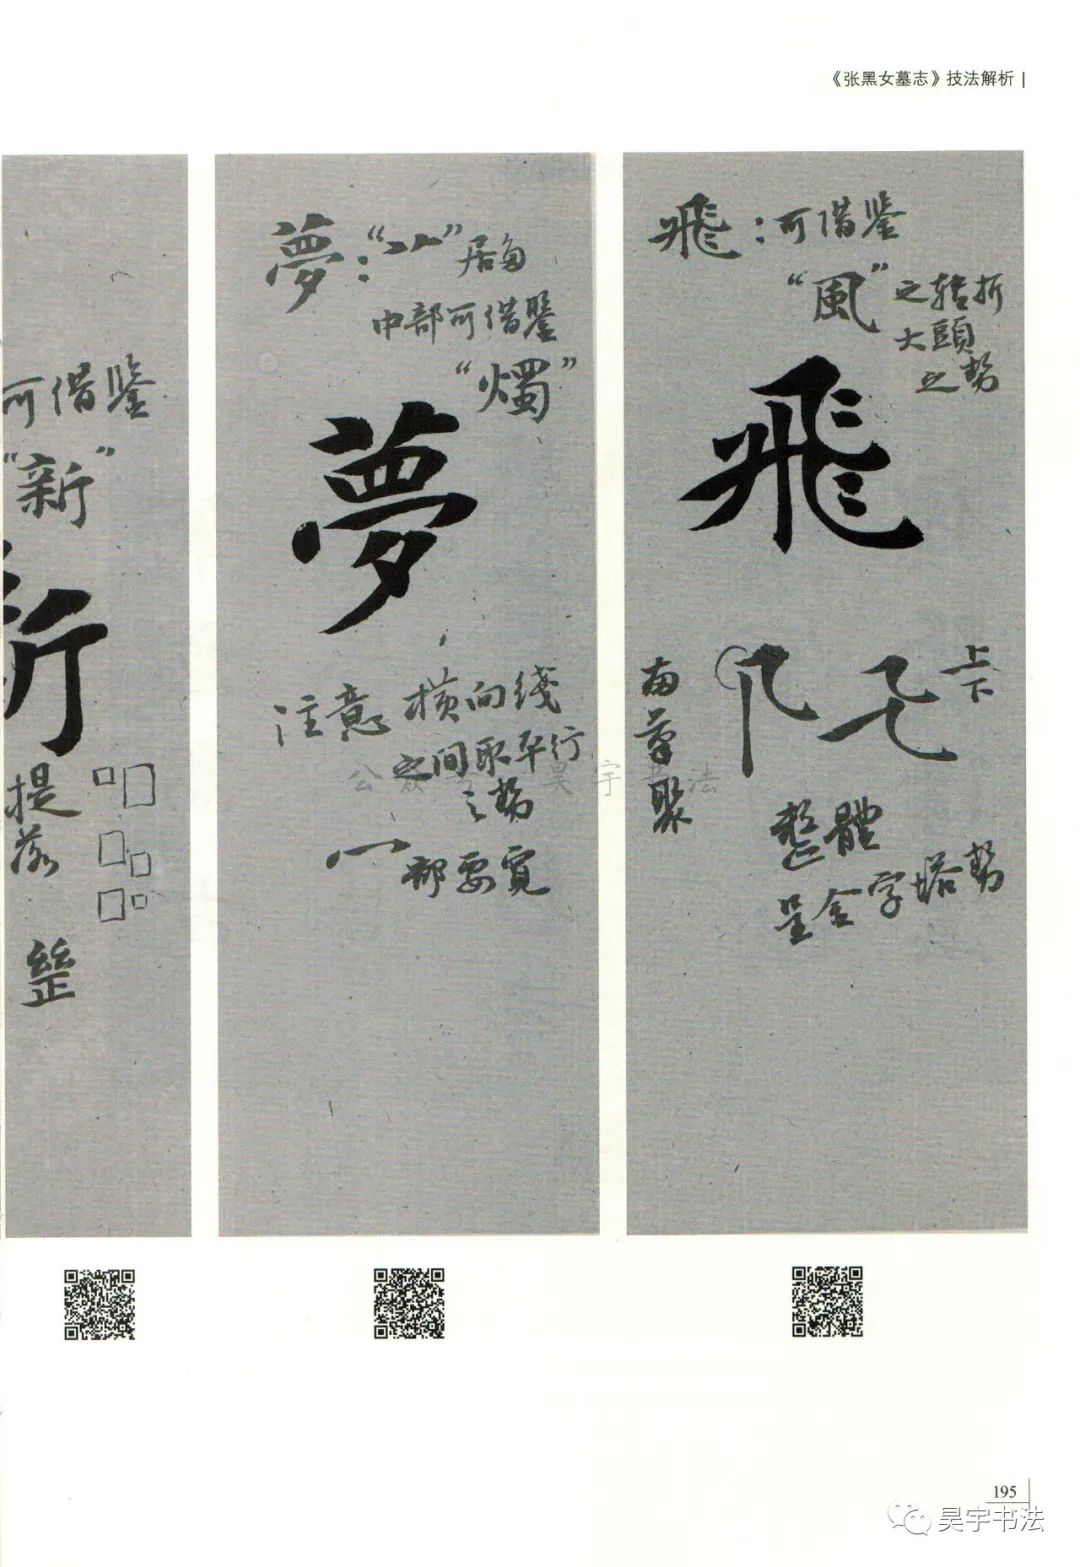 《张黑女墓志》技法解析
可借鉴
“新”
新
提
整
夢：“䒑”居
中部可借鉴
“燭”
夢
注意 横向线
之间取平行
之势
冖部要宽
飛：可借鉴
“風”之转折
大頭
之势
飛
上
下
聚
整體
呈金字塔势
公众号 昊宇书法
195
昊宇书法